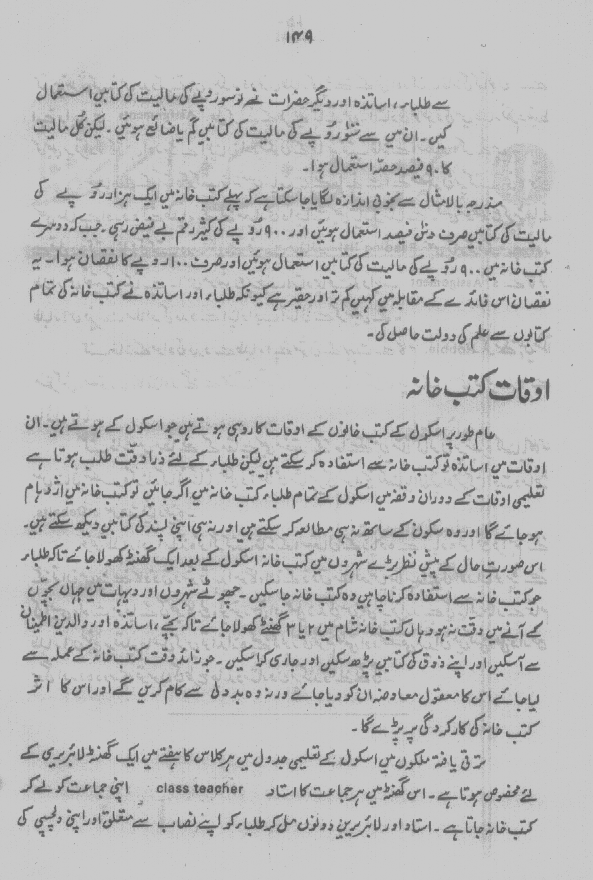 ۱۴۹
سے طلباء، اساتذہ اور دیگر حضرات نے نو سو روپے کی مالیت کی کتابیں استعمال
کیں۔ ان میں سے سَو روپے کی مالیت کی کتابیں گم یا ضائع ہوئیں۔ لیکن کُل مالیت
کا ۹۰ فیصد حصّہ استعمال ہوا۔
مندرجہ بالا مثال سے بخوبی اندازہ لگایا جاسکتا ہے کہ پہلے کتب خانہ میں ایک ہزار روپے کی
مالیت کی کتابیں صرف دس فیصد استعمال ہوئیں اور ۹۰۰ روپے کی کثیر رقم بے فیض رہی۔ جب کہ دوسرے
کتب خانہ میں ۹۰۰ روپے کی مالیت کی کتابیں استعمال ہوئیں اور صرف ۱۰۰ روپے کا نقصان ہوا۔ یہ
نقصان اس فائدے کے مقابلہ میں کہیں کم تر اور حقیر ہے کیونکہ طلباء اور اساتذہ نے کتب خانہ کی تمام
کتابوں سے علم کی دولت حاصل کی۔
اوقات کتب خانہ
عام طور پر اسکول کے کتب خانوں کے اوقات کار وہی ہوتے ہیں جو اسکول کے ہوتے ہیں۔ ان
اوقات میں اساتذہ تو کتب خانہ سے استفادہ کرسکتے ہیں لیکن طلباء کے لئے ذرا دقّت طلب ہوتا ہے
تعلیمی اوقات کے دوران وقفہ میں اسکول کے تمام طلباء کتب خانہ میں اگر جائیں تو کتب خانہ میں اژدہام
ہوجائے گا اور وہ سکون کے ساتھ نہ ہی مطالعہ کرسکتے ہیں اور نہ ہی اپنی پسند کی کتابیں دیکھ سکتے ہیں۔
اس صورتِ حال کے پیش نظر بڑے شہروں میں کتب خانہ اسکول کے بعد ایک گھنٹہ کھولا جائے تاکہ طلباء
جو کتب خانہ سے استفادہ کرنا چاہیں وہ کتب خانہ جاسکیں۔ چھوٹے شہروں اور دیہات میں جہاں بچّوں
کے آنے میں دقت نہ ہو وہاں کتب خانہ شام میں ۲ یا ۳ گھنٹے کھولا جائے تاکہ بچّے، اساتذہ اور والدین اطمینان
سے آسکیں اور اپنے ذوق کی کتابیں پڑھ سکیں اور جاری کراسکیں۔ جو زائد وقت کتب خانہ کے عملہ سے
لیا جائے اس کا معقول معاوضہ ان کو دیا جائے ورنہ وہ بددلی سے کام کریں گے اور اس کا اثر
کتب خانہ کی کارکردگی پر پڑے گا۔
ترقی یافتہ ملکوں میں اسکول کے تعلیمی جدول میں ہر کلاس کا ہفتے میں ایک گھنٹہ لائبریری کے
لئے مخصوص ہوتا ہے۔ اس گھنٹہ میں ہر جماعت کا استاد class teacher اپنی جماعت کو لے کر
کتب خانہ جاتا ہے۔ استاد اور لائبریرین دونوں مل کر طلباء کو اپنے نصاب سے متعلق اور اپنی دلچسپی کی